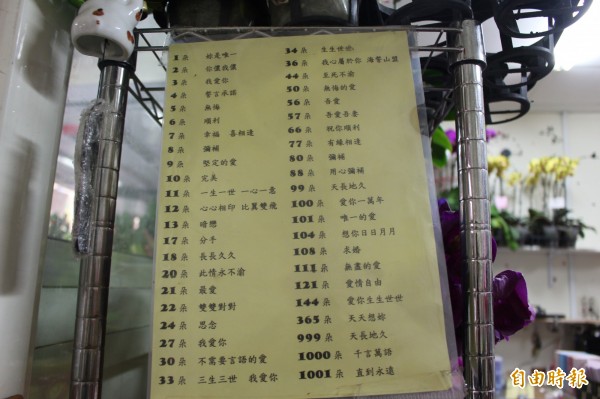 1 朵 妳是唯一
2 朵 你儂我儂
3 朵 我愛你
4 朵 誓言承諾
5 朵 無悔
6 朵 順利
7 朵 幸福 喜相逢
8 朵 彌補
9 朵 堅定的愛
10 朵 完美
11 朵 一生一世 一心一意
12 朵 心心相印 比翼雙飛
13 朵 暗戀
17 朵 分手
18 朵 長長久久
20 朵 此情永不渝
21 朵 最愛
22 朵 雙雙對對
24 朵 思念
27 朵 我愛你
30 朵 不需要言語的愛
33 朵 三生三世 我愛你
34 朵 生生世世
36 朵 我心屬於你 海誓山盟
44 朵 至死不渝
50 朵 無悔的愛
56 朵 吾愛
57 朵 吾愛吾妻
66 朵 祝你順利
77 朵 有緣相逢
80 朵 彌補
88 朵 用心彌補
99 朵 天長地久
100 朵 愛你一萬年
101 朵 唯一的愛
104 朵 想你日日月月
108 朵 求婚
111 朵 無盡的愛
121 朵 愛情自由
144 朵 愛你生生世世
365 朵 天天想妳
999 朵 天長地久
1000 朵 千言萬語
1001 朵 直到永遠
自由時報